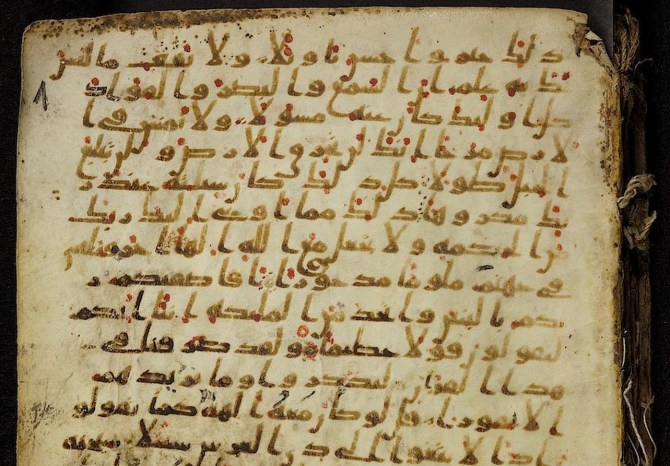 ذلك خير واحسن تاويلا ولا تقف ما ليس
لك به علم ان السمع والبصر والفواد
كل اوليك كان عنه مسولا ولا تمش في ا
لارض مرحا انك لن تخرق الارض ولن تبلغ
الجبل طولا كل ذلك كان سييه عند ر
بك مكروها ذلك مما اوحى اليك ربك
من الحكمه ولا تجعل مع الله الها اخر فتلقى
في جهنم ملوما مدحورا افاصفيكم ر
بكم بالبنين واتخذ من المليكه انثا انكم
لتقولون قولا عظيما ولقد صرفنا في
هذا القران ليذكروا وما يزيدهم
الا نفورا قل لو كان معه الهه كما يقولو
ن اذا لابتغوا الى ذي العرش سبيلا سبحنه